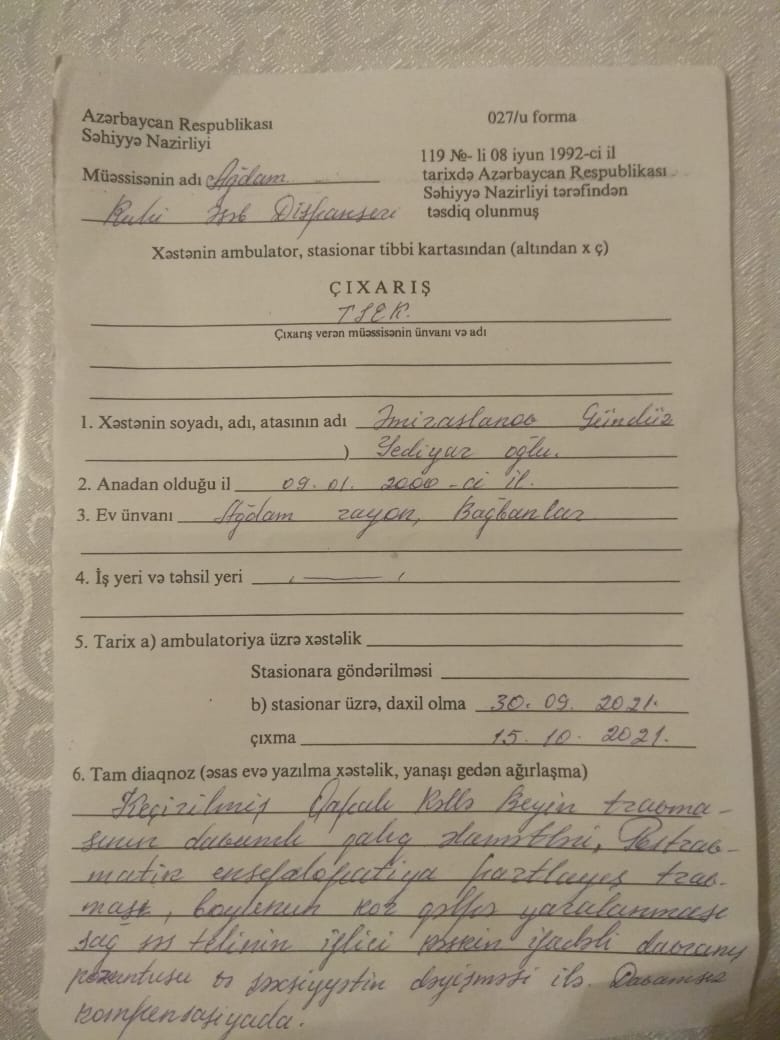 Azərbaycan Respublikası
Səhiyyə Nazirliyi
027/u forma
119 №- li 08 iyun 1992-ci il
tarixdə Azərbaycan Respublikası
Səhiyyə Nazirliyi tərəfindən
təsdiq olunmuş
Müəssisənin adı Ağdam
Ruhi Əsəb Dispanseri
Xəstənin ambulator, stasionar tibbi kartasından (altından x ç)
ÇIXARIŞ
TSEK.
Çıxarış verən müəssisənin ünvanı və adı
1. Xəstənin soyadı, adı, atasının adı Əmiraslanov Gündüz
) Yediyar oğlu.
2. Anadan olduğu il 09.01.2000-ci il.
3. Ev ünvanı Ağdam rayon, Bağbanlar
4. İş yeri və təhsil yeri
5. Tarix a) ambulatoriya üzrə xəstəlik
Stasionara göndərilməsi
b) stasionar üzrə, daxil olma 30.09.2021.
çıxma 15.10.2021.
6. Tam diaqnoz (əsas evə yazılma xəstəlik, yanaşı gedən ağırlaşma)
Keçirilmiş Qapalı Kəllə Beyin travma-
sının davamlı qalıq əlamətləri, Postrav-
matik ensefalopatiya partlayış trav-
ması, boyunun kor qəlpə yaralanması
sağ səs telinin iflici kəskin ifadəli davranış
pozuntusu və şəxsiyyətin dəyişməsi ilə. Davamsız
kompensasiyada.